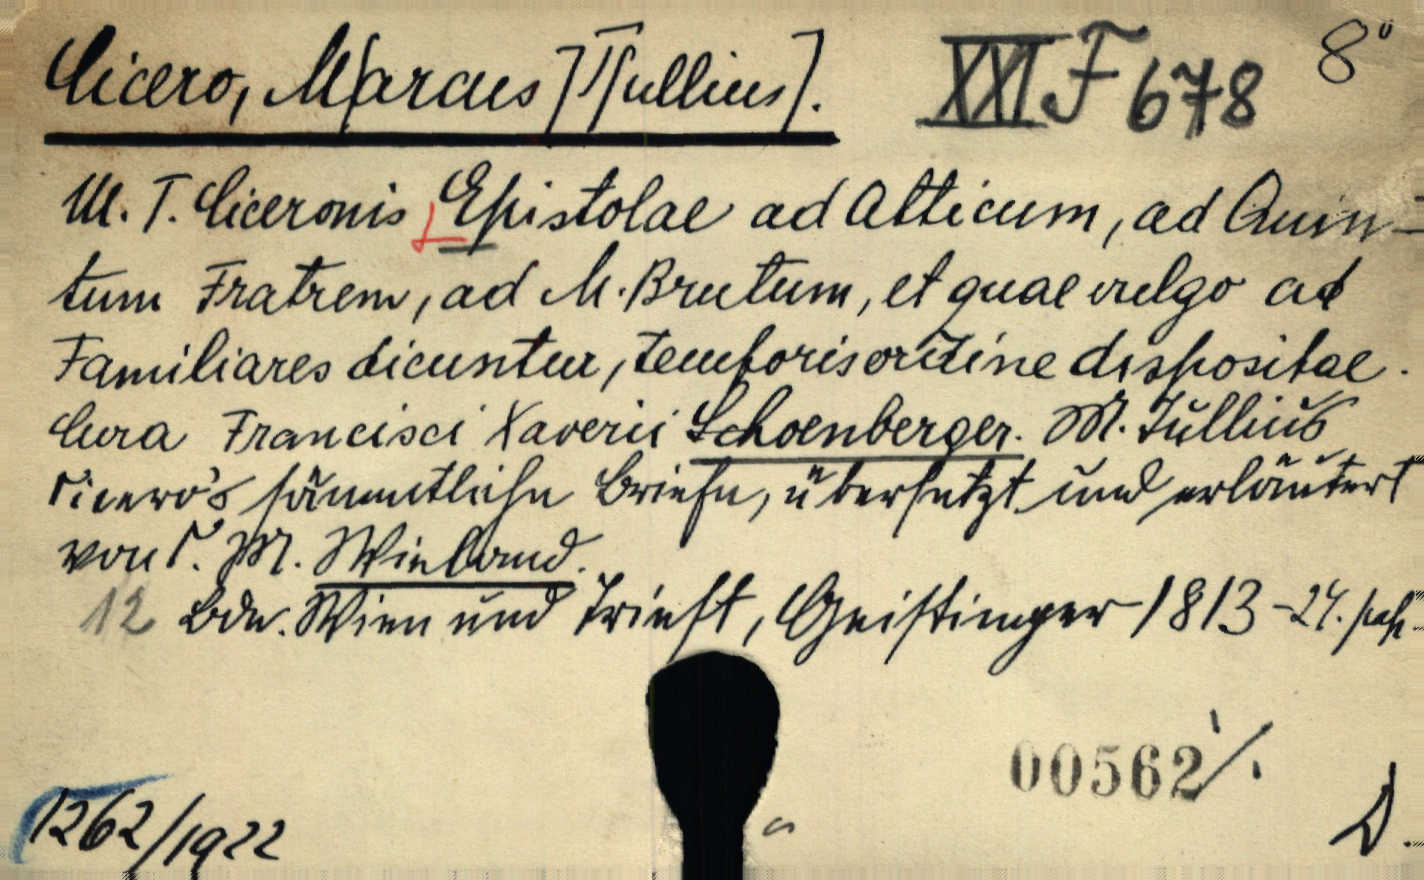 Cicero, M[arcus] T[ullius]. XXI F 678 8°
M. T. Ciceronis Epistolae ad Atticum, ad Quin-
tum Fratrem, ad M. Brutum, et quae vulgo ad
Familiares dicuntur, temporis ordine dispositae.
Cura Francisci Xaverii Schoenberger. M. Tullius
Cicero's sämmtliche Briefe, übersetzt und erläutert
von C. M. Wieland.
12 Bde. Wien und Triest, Geistinger 1813-24.
00562
1262/1922
D.